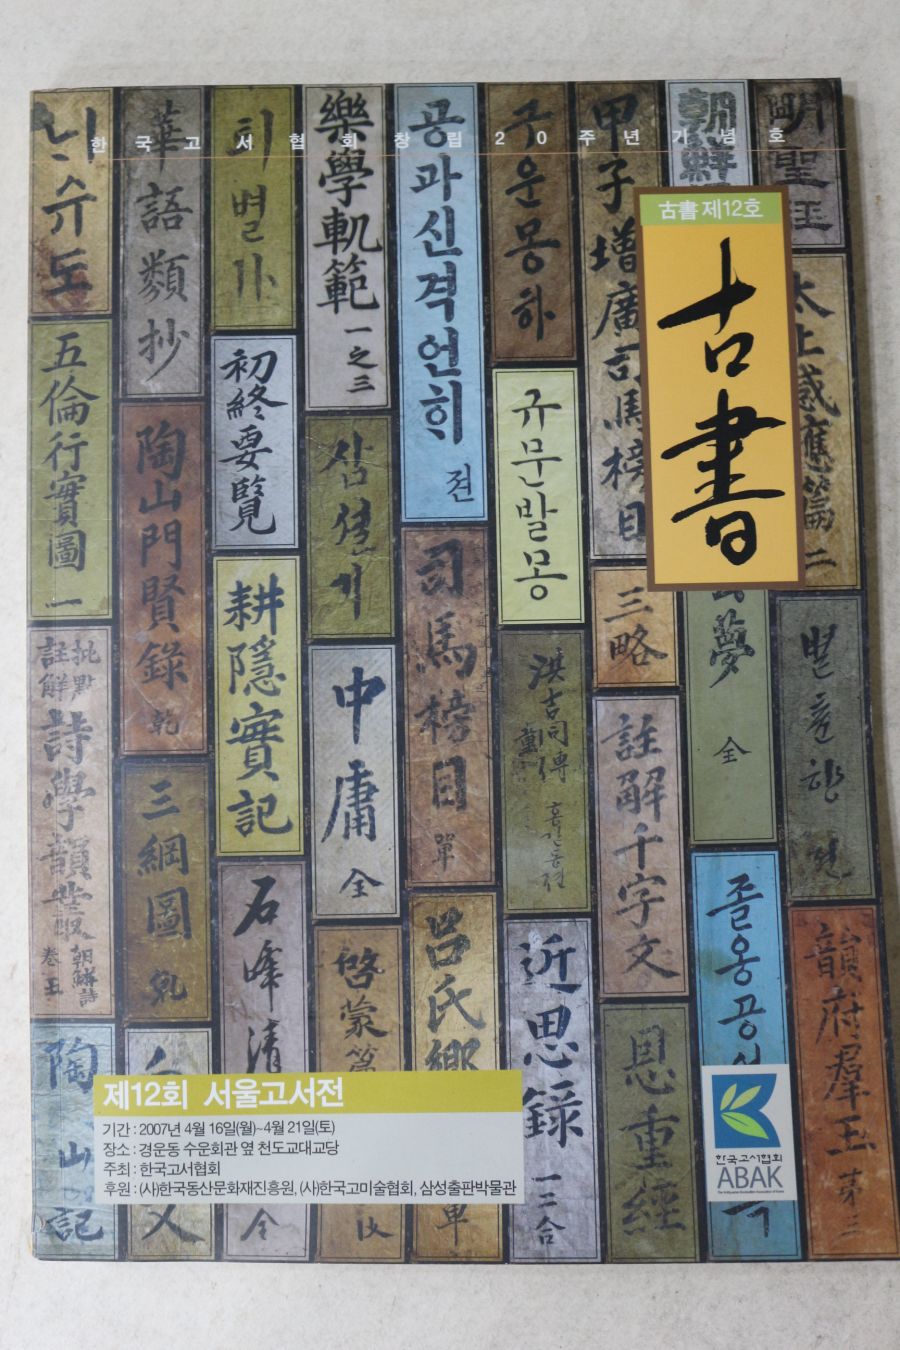 한국고서협회창립20주년기념호
古書 제12호
古書
닌슈도
五倫行實圖 一
批點註解 詩學韻叢 卷五
陶山 記
華語類抄
陶山門賢錄 乾
三綱圖 乳
初終要覽
耕隱實記
石峰清
樂學軌範 一之三
삼셜기
中庸 全
啓蒙篇
공과신격언희 젼
司馬榜目 單
呂氏鄉
구운몽 하
규문발몽
洪吉同傳
近思錄 一 三合
甲子增廣司馬榜目
三略
註解千字文
恩重經
朝鮮
夢 全
明聖
太上感應篇 二
韻府羣玉 第三
제12회 서울고서전
기간 : 2007년 4월 16일(월)~4월 21일(토)
장소 : 경운동 수운회관 옆 천도교대교당
주최 : 한국고서협회
후원 : (사)한국동산문화재진흥원, (사)한국고미술협회, 삼성출판박물관
한국고서협회
ABAK